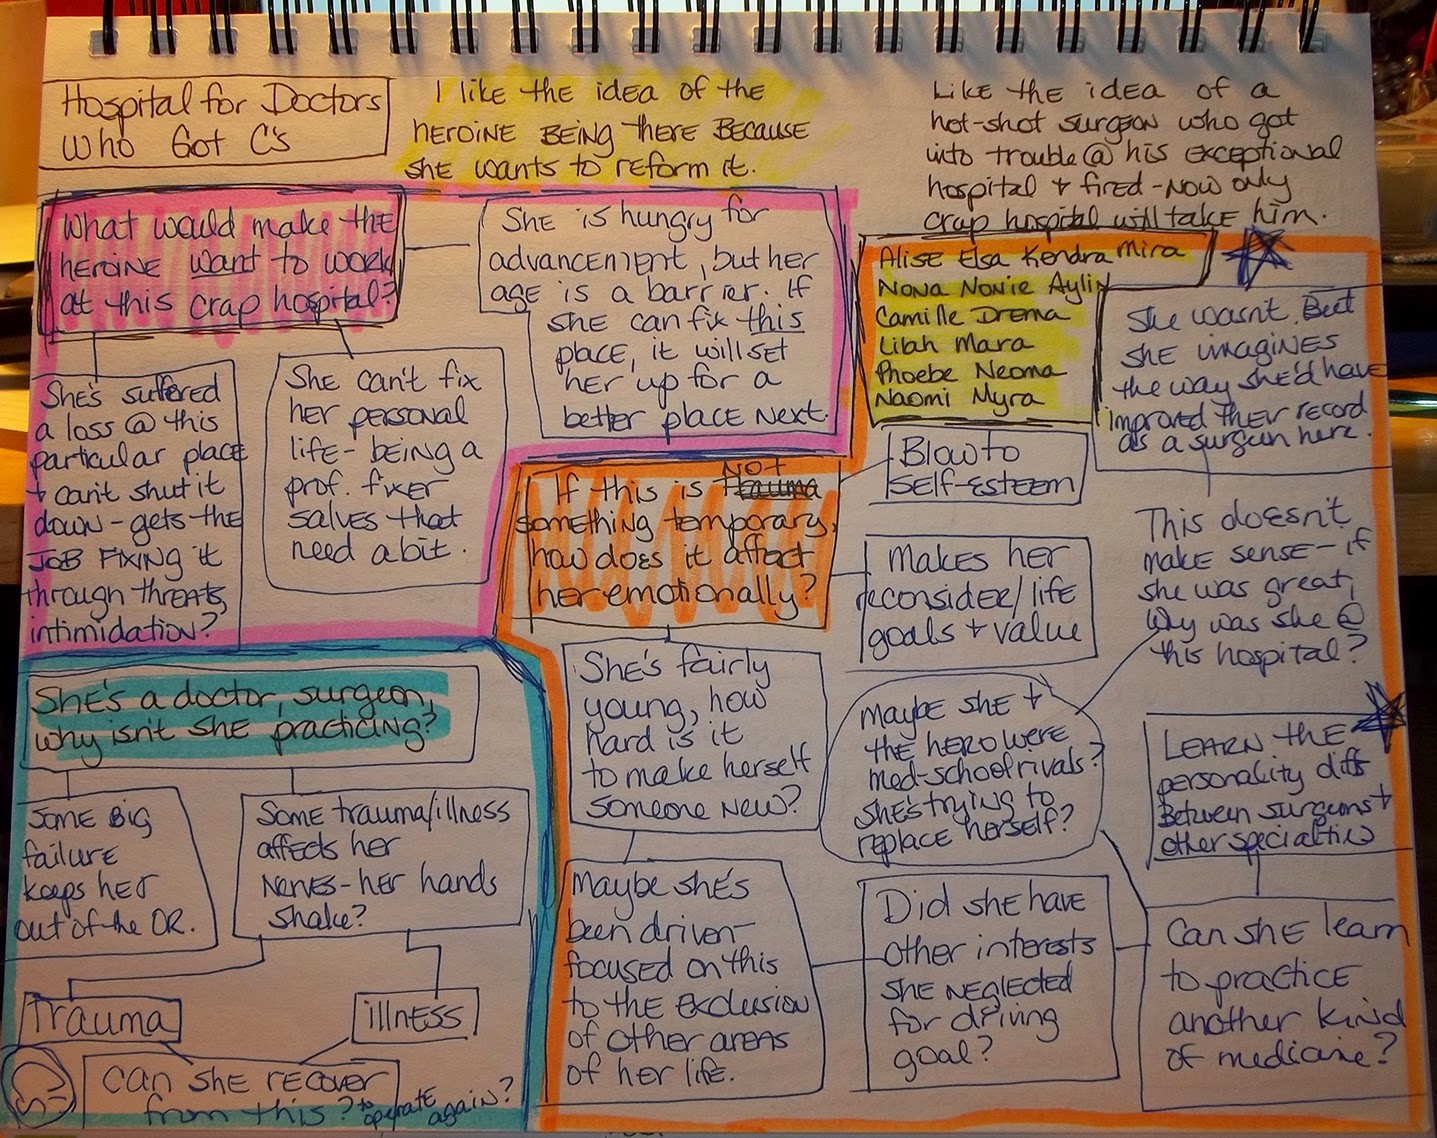 Hospital for Doctors
Who Got C's
I like the idea of the
heroine being there because
she wants to reform it.
Like the idea of a
hot-shot surgeon who got
into trouble @ his exceptional
hospital + fired - now only
crap hospital will take him.
What would make the
heroine want to work
at this crap hospital?
She is hungry for
advancement, but her
age is a barrier. If
she can fix this
place, it will set
her up for a
better place next.
She's suffered
a loss @ this
particular place
+ can't shut it
down - gets the
job fixing it
through threats,
intimidation?
She can't fix
her personal
life - being a
prof. fixer
salves that
need a bit.
Alise Elsa Kendra Mira
Nona Novie Aylin
Camille Drema
Lilah Mara
Phoebe Neoma
Naomi Myra
She wasn't. But
she imagines
the way she'd have
improved their record
as a surgeon here.
If this is trauma NOT
something temporary,
how does it affect
her emotionally?
Blow to
self-esteem
Makes her
reconsider/life
goals + value
This doesn't
make sense - if
she was great,
why was she @
this hospital?
She's fairly
young, how
hard is it
to make herself
someone new?
Maybe she +
the hero were
med-school rivals?
She's trying to
replace herself?
Learn the
personality diffs
between surgeons +
other specialties
Maybe she's
been driven -
focused on this
to the exclusion
of other areas
of her life.
Did she have
other interests
she neglected
for driving
goal?
Can she learn
to practice
another kind
of medicine?
She's a doctor, surgeon,
why isn't she practicing?
Some big
failure
keeps her
out of the OR.
Some trauma/illness
affects her
nerves - her hands
shake?
Trauma
illness
Can she recover
from this? to operate again?